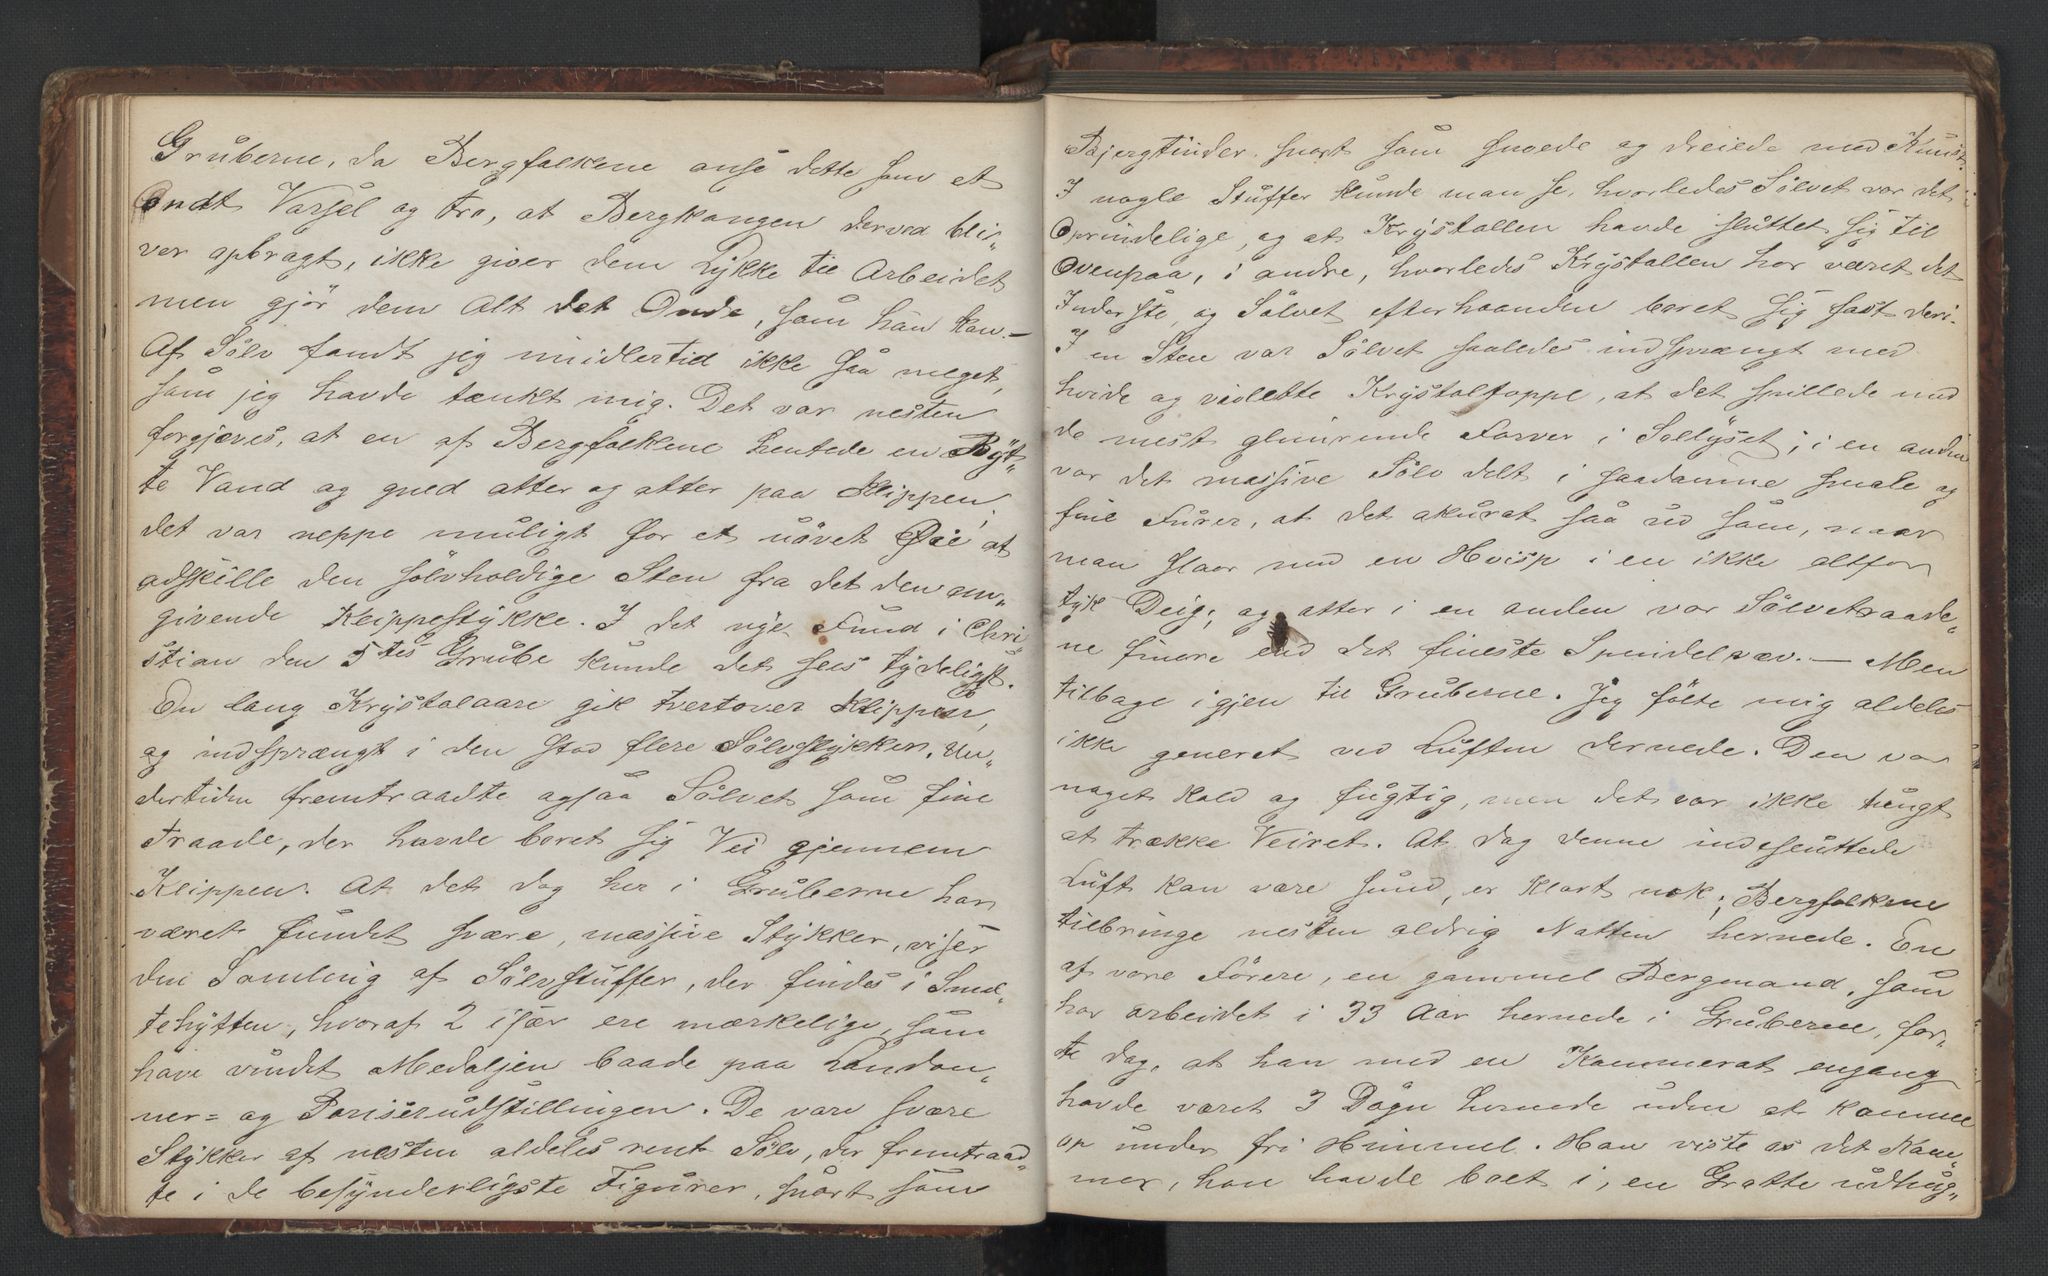 Gruberne, da Bergfolkene anse dette som et
Ondt Varsel og tro, at Bergkongen derved bli„
ver opbragt, ikke giver dem Lykke til Arbeidet
men gjör dem Alt det Onde, som han kan. —
Af Sölv fandt jeg imidlertid ikke saa meget,
som jeg havde tænkt mig. Det var nesten
forgjæves, at en af Bergfolkene hentede en Böt„
te Vand og gned atter og atter paa Klippen;
det var neppe muligt for et uövet Öie at
adskille den sölvholdige Sten fra det den om„
givende Klippestykke. I det nye Fund i Chri„
stian den 5tes Grube kunde det sees tydeligst.
En lang Krystalaare gik tvertover Klippen,
og indsprængt i den stod flere Sölvstykker. Un„
dertiden fremtraadte ogsaa Sölvet som fine
Traade, der havde boret sig Vei gjennem
Klippen. At det dog her i Gruberne har
været fundet svære, massive Stykker, viser
den Samling af Sölvstuffer, der findes i Smel„
tehytten, hvoraf 2 især ere mærkelige, som
have vundet Medaljen baade paa London„
ner= og Pariserudstillingen. De vare svære
Stykker af nesten aldeles rent Sölv, der fremtraad„
te i de besynderligste Figurer, snart som
Bjergtinder, snart som snoede og dreiede med Kunst.
I nogle Stuffer kunde man se, hvorledes Sölvet var det
Oprindelige, og at Krystallen havde sluttet sig til
Ovenpaa, i andre, hvorledes Krystallen har været det
Inderste, og Sölvet efterhaanden boret sig fast deri.
I en Sten var Sölvet saaledes indsprængt med
hvide og violette Krystaltoppe, at det spillede med
de mest glimrende Farver i Sollyset; i en anden
var det massive Sölv delt i saadanne smale og
fine Furer, at det akurat saa ud som, naar
man slaar med en Hvisp i en ikke altfor
tyk Deig; og atter i en anden var Sölvetraade„
ne finere end det fineste Spindelvæv. — Men
tilbage igjen til Gruberne. Jeg fölte mig aldeles
ikke generet ved Luften dernede. Den var
noget kold og fugtig, men det var ikke tungt
at trække Veiret. At dog denne indesluttede
Luft kan være sund, er klart nok; Bergfolkene
tilbringe nesten aldrig Natten hernede. En
af vore Förere, en gammel Bergmand, som
har arbeidet i 33 Aar hernede i Gruberne, for„
te dog, at han med en Kammerat engang
havde været 3 Dögn hernede uden at komme
op under fri Himmel. Han viste os det Kam„
mer, han havde boet i, en Grotte udhug„